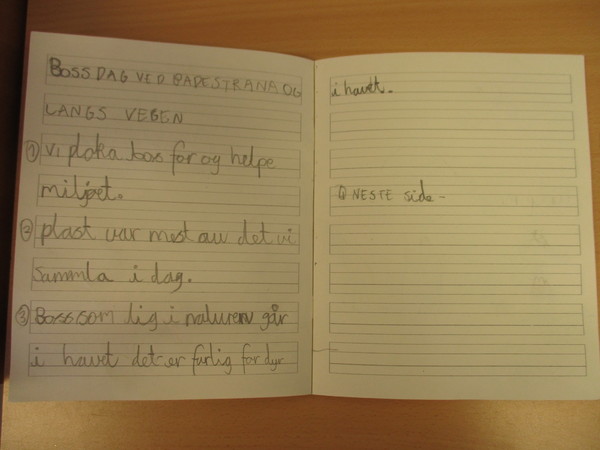 BOSSDAG VED BADESTRANA OG
LANGS VEGEN
① Vi ploka bos for og helpe
miljøet.
② plast var mest av det vi
sammla i dag.
③ Boss som lig i naturen går
i havet det er farlig for dyr
i havet.
④ NESTE side -